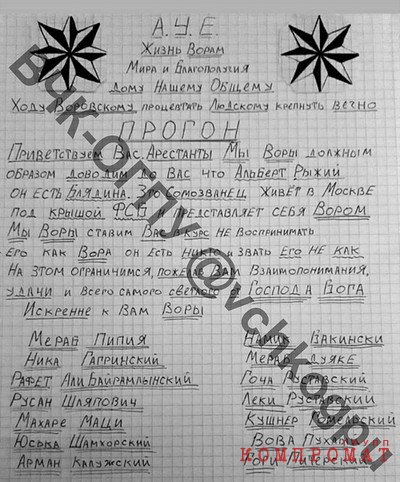 А.У.Е.
Жизнь Ворам
Мира и Благополучия
Дому Нашему Общему
Ходу Воровскому процветать Людскому крепнуть вечно
ПРОГОН
Приветствуем Вас, Арестанты Мы Воры должным
образом доводим до Вас что Альберт Рыжий
он есть Блядина. Это Сомозванец живёт в Москве
под крышой ФСБ и представляет себя Вором
Мы Воры ставим Вас в курс не воспринимать
Его как Вора он есть Никто и звать Его не как
На этом ограничимся, пожелав Вам Взаимопонимания,
удачи и всего самого светлого от Господа Бога
Искренне к Вам Воры
Мераб Пипия
Ника Гагринский
Рафет Али Байрамлынский
Русан Шляпович
Махаре Маци
Юська Шамхорский
Арман Калужский
Намик Бакински
Мераб Дуяке
Гоча Руставский
Леки Руставский
Кушнер Гомельский
Вова Пухлый
Гори Питерский
ВЧК-ОГПУ @vchkogpu
КОМПРОМАТ